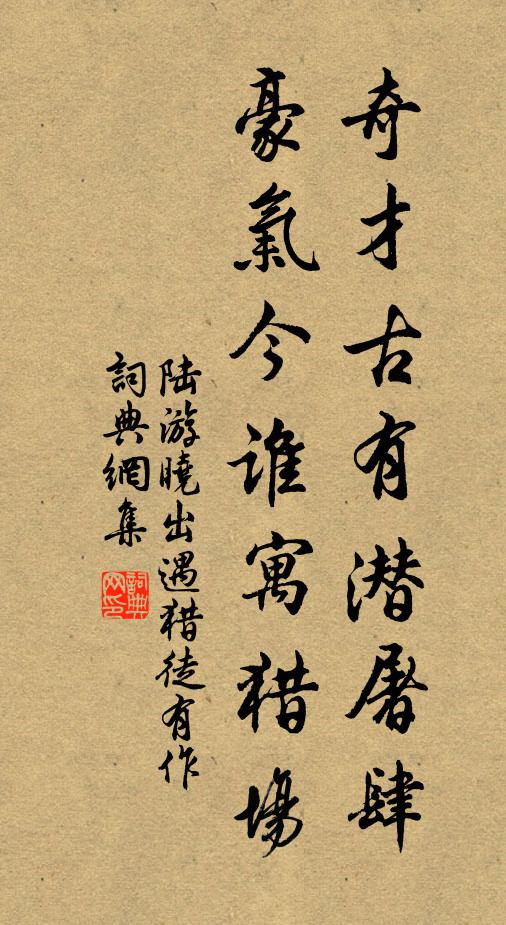 奇才古有潜屠肆
豪氣今谁寓猎場
陆游曉出遇猎徒有作
詞典網集
詞典网印